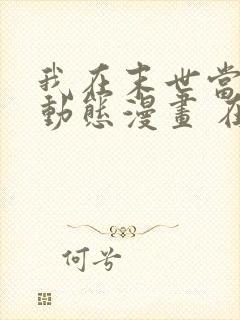 我在末世當
動態漫畫 在
何兮